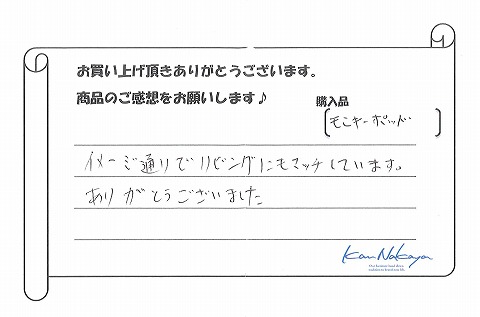 お買い上げ頂きありがとうございます。
商品のご感想をお願いします♪
購入品
[モンキーポッド]
イメージ通りでリビングにもマッチしています。
ありがとうございました
Kan Nakaya